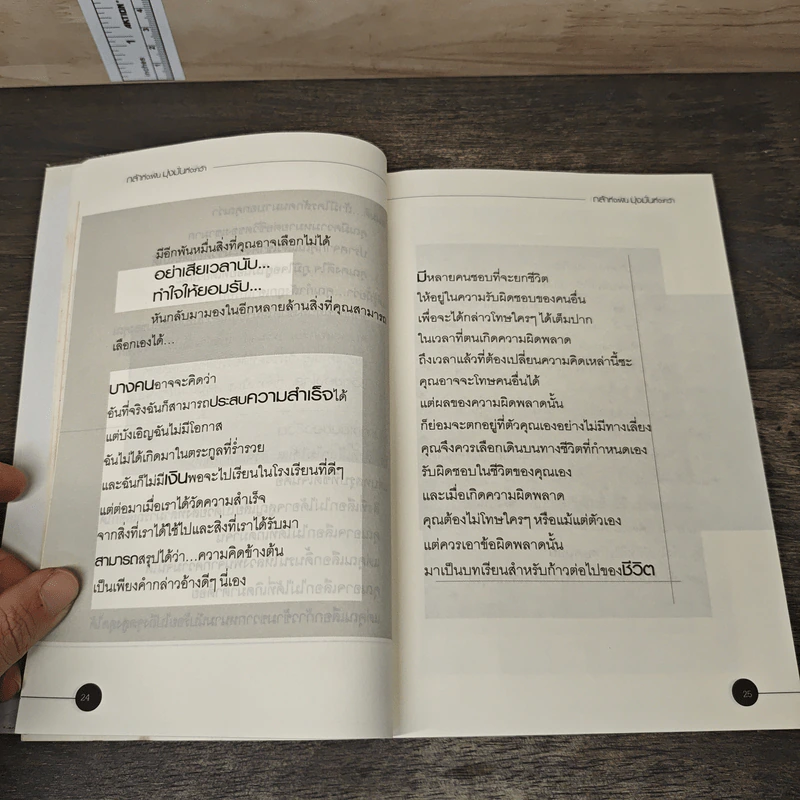 กล้าที่จะฝัน มุ่งมั่นที่จะคว้า
มีอีกพันหมื่นสิ่งที่คุณอาจเลือกไม่ได้
อย่าเสียเวลานับ...
ทำใจให้ยอมรับ...
หันกลับมามองในอีกหลายล้านสิ่งที่คุณสามารถ
เลือกเองได้...
บางคนอาจจะคิดว่า
ฉันที่จริงฉันก็สามารถประสบความสำเร็จได้
แต่บังเอิญฉันไม่มีโอกาส
ฉันไม่ได้เกิดมาในตระกูลที่ร่ำรวย
และฉันก็ไม่มีเงินพอจะไปเรียนในโรงเรียนที่ดีๆ
แต่ต่อมาเมื่อเราได้วัดความสำเร็จ
จากสิ่งที่เราได้ใช้ไปและสิ่งที่เราได้รับมา
สามารถสรุปได้ว่า...ความคิดข้างต้น
เป็นเพียงคำกล่าวอ้างดีๆ นี่เอง
24
กล้าที่จะฝัน มุ่งมั่นที่จะคว้า
มีหลายคนชอบที่จะยกชีวิต
ให้อยู่ในความรับผิดชอบของคนอื่น
เพื่อจะได้กล่าวโทษใครๆ ได้เต็มปาก
ในเวลาที่ตนเกิดความผิดพลาด
ถึงเวลาแล้วที่ต้องเปลี่ยนความคิดเหล่านี้ซะ
คุณอาจจะโทษคนอื่นได้
แต่ผลของความผิดพลาดนั้น
ก็ย่อมจะตกอยู่ที่ตัวคุณเองอย่างไม่มีทางเลี่ยง
คุณจึงควรเลือกเดินบนทางชีวิตที่กำหนดเอง
รับผิดชอบในชีวิตของคุณเอง
และเมื่อเกิดความผิดพลาด
คุณต้องไม่โทษใครๆ หรือแม้แต่ตัวเอง
แต่ควรเอาข้อผิดพลาดนั้น
มาเป็นบทเรียนสำหรับก้าวต่อไปของชีวิต
25